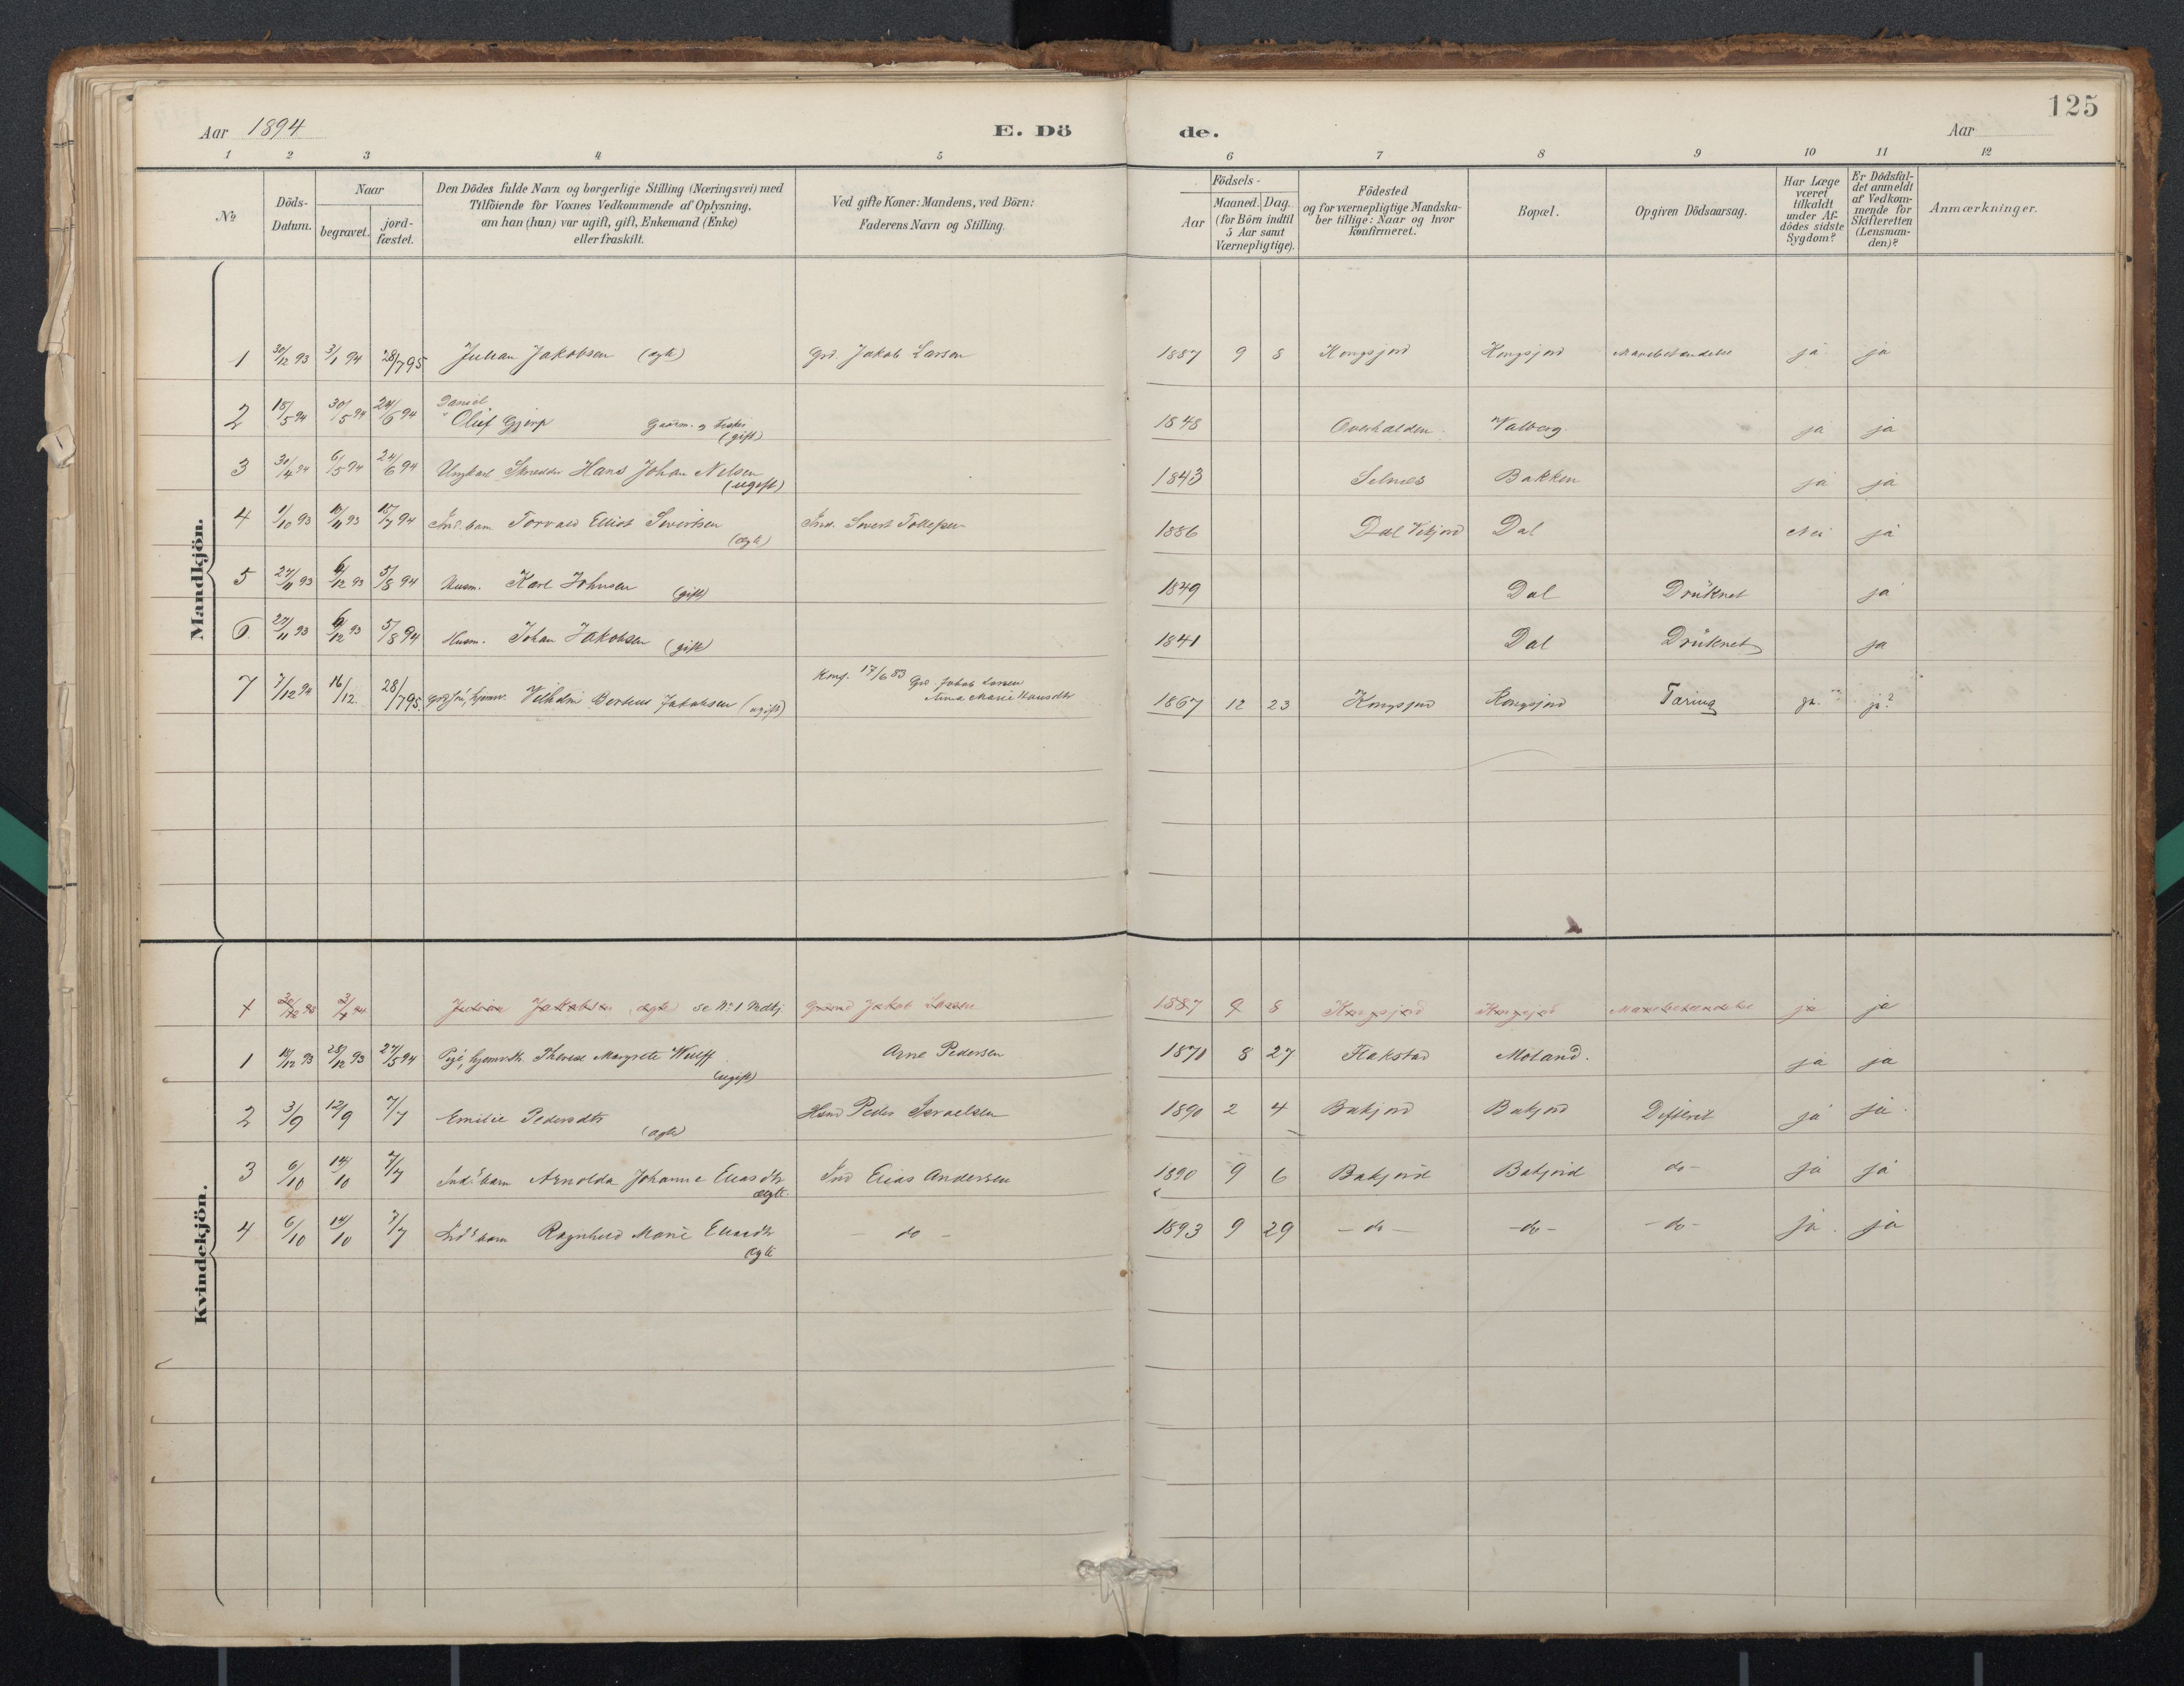 125
Aar 1894 E. Dö de. Aar
1 2 3 4 5 6 7 8 9 10 11 12
№
Döds-Datum.
Naar
begravet.
jord-fæstet.
Den Dödes fulde Navn og borgerlige Stilling (Næringsvei) med
Tilföiende for Voxnes Vedkommende af Oplysning,
om han (hun) var ugift, gift, Enkemand (Enke)
eller fraskilt.
Ved gifte Koner: Mandens, ved Börn:
Faderens Navn og Stilling.
Födsels-
Aar
Maaned. Dag.
(for Börn indtil
5 Aar samt
Værnepligtige).
Födested
og for værnepligtige Mandska-
ber tillige: Naar og hvor
Konfirmeret.
Bopæl.
Opgiven Dödsaarsag.
Har Læge
været
tilkaldt
under Af-
dödes sidste
Sygdom?
Er Dödsfal-
det anmeldt
af Vedkom-
mende for
Skifteretten
(Lensman-
den)?
Anmærkninger.
Mandkjön.
1 30/12 93 3/1 94 28/7 95 Julian Jakobsen (ægte) Grd. Jakob Larsen 1887 9 8 Kongsjord Kongsjord ja ja
2 18/5 94 30/5 94 24/6 94 Daniel Oluf Gjerp Gaarm. og (gift) 1848 Overhalden Valberg ja ja
3 30/4 94 6/5 94 24/6 94 Ungkarl Skrædder Hans Johan Nelsen (ugift) 1843 Selnæs Bakken ja ja
4 1/10 93 11/93 15/7 94 Ind. barn Torvald Elliot Sivertsen (ægte) Ind. Sivert Tollefsen 1886 Dal Dal Nei ja
5 27/11 93 6/12 93 5/8 94 Husm. Karl Johnsen (gift) 1849 Dal Drüknet ja
6. 27/11 93 6/12 93 5/8 94 Husm. Johan Jakobsen (gift) 1841 Dal Drüknet ja
7 7/12 94 16/12. 28/7 95. Vilhelm Berteus Jakobsen (ugift) Konf. 17/6 83 Grd. Jakob Larsen
Anna Marie Hansdtr 1867 12 23 Kongsjord Kongsjord Tæring ja. ja?
Kvindekjön.
30/12 93 3/1 94 Julian Jakobsen (ægte) se № 1 Mdkj. Jakob Larsen 1887 9 8 Kongsjord Kongsjord ja ja
1 18/12 93 28/12 93 27/5 94 Pige, hjemv. Therese Margrete Wulff (ugift) Arne Pedersen 1871 8 27 Flakstad Moland. ja ja
2 3/9 12/9 7/7 Emilie Pedersdtr (ægte) Husmd Peder Israelsen 1890 2 4 Bakjord Bakjord Difterit ja ja.
3 6/10 14/10 7/7 Inds barn Arnolda Johanne Eliasdtr ægte. Ind Elias Andersen 1890 9 6 Bakjord Bakjord do- ja ja
4 6/10 14/10 7/7 Inds barn Ragnhild Marie Eliasdtr ægte - do - 1893 9 29 - do - - do - - do - ja. ja